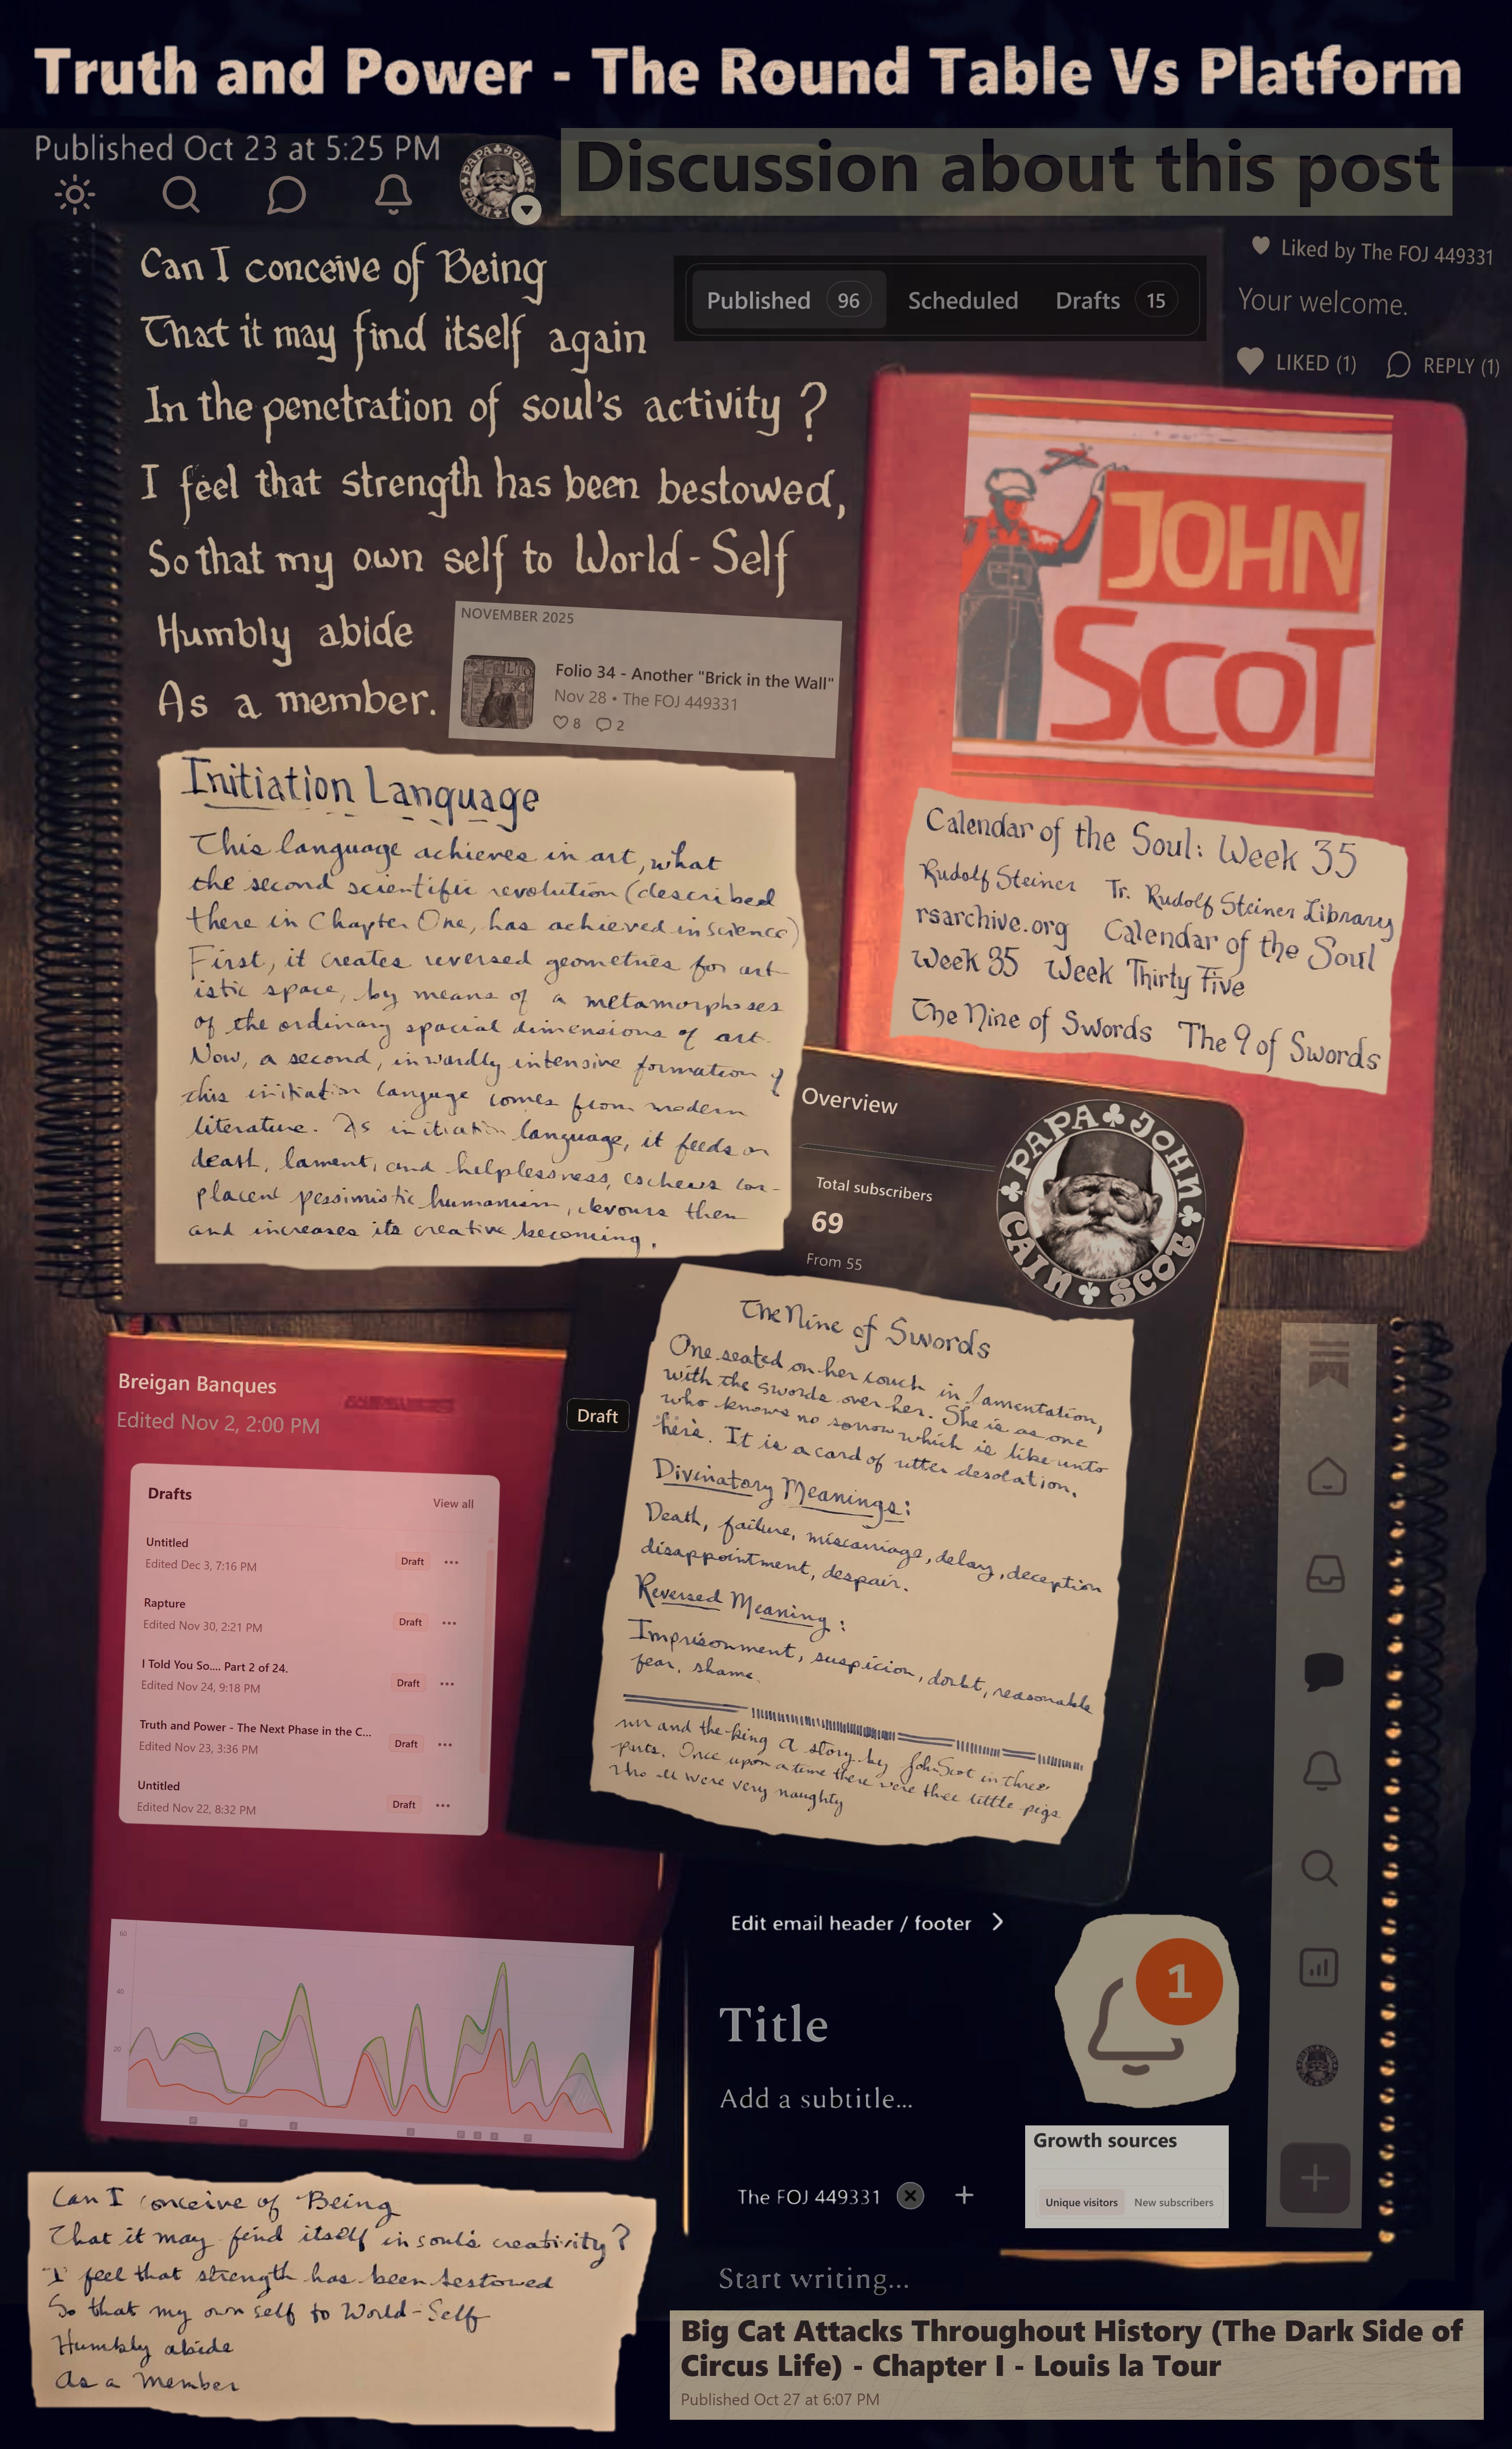 Truth and Power - The Round Table Vs Platform
Published Oct 23 at 5:25 PM
Discussion about this post
PAPA JOHN CAIN SCOT
Liked by The FOJ 449331
Your welcome.
LIKED (1) REPLY (1)
Published 96 Scheduled Drafts 15
Can I conceive of Being
That it may find itself again
In the penetration of soul's activity ?
I feel that strength has been bestowed,
So that my own self to World-Self
Humbly abide
As a member.
NOVEMBER 2025
Folio 34 - Another "Brick in the Wall"
Nov 28 • The FOJ 449331
8 2
JOHN
SCOT
Calendar of the Soul: Week 35
Rudolf Steiner Tr. Rudolf Steiner Library
rsarchive.org Calendar of the Soul
Week 35 Week Thirty Five
The Nine of Swords The 9 of Swords
Initiation Language
This language achieves in art, what
the second scientific revolution (described
there in Chapter One, has achieved in science)
First, it creates reversed geometries for art-
istic space, by means of a metamorphoses
of the ordinary spacial dimensions of art.
Now, a second, inwardly intensive formation of
this initiation language comes from modern
literature. As initiation language, it feeds on
death, lament, and helplessness, eschews com-
placent pessimistic humanism, devours them
and increases its creative becoming.
Overview
Total subscribers
69
From 55
PAPA JOHN CAIN SCOT
The Nine of Swords
One seated on her couch in lamentation,
with the swords over her. She is as one
who knows no sorrow which is like unto
hers. It is a card of utter desolation.
Divinatory Meanings:
Death, failure, miscarriage, delay, deception
disappointment, despair.
Reversed Meaning:
Imprisonment, suspicion, doubt, reasonable
fear, shame.
and the king a story by John Scot in three
parts. Once upon a time there were three little pigs
who all were very naughty
Breigan Banques
Edited Nov 2, 2:00 PM
Draft
Drafts View all
Untitled
Edited Dec 3, 7:16 PM Draft
Rapture
Edited Nov 30, 2:21 PM Draft
I Told You So.... Part 2 of 24.
Edited Nov 24, 9:18 PM Draft
Truth and Power - The Next Phase in the C...
Edited Nov 23, 3:36 PM Draft
Untitled
Edited Nov 22, 8:32 PM Draft
60
40
20
Edit email header / footer
1
Title
Add a subtitle...
Growth sources
Unique visitors New subscribers
The FOJ 449331
Start writing...
Can I conceive of Being
That it may find itself in soul's creativity?
I feel that strength has been bestowed
So that my own self to World-Self
Humbly abide
As a Member
Big Cat Attacks Throughout History (The Dark Side of
Circus Life) - Chapter I - Louis la Tour
Published Oct 27 at 6:07 PM